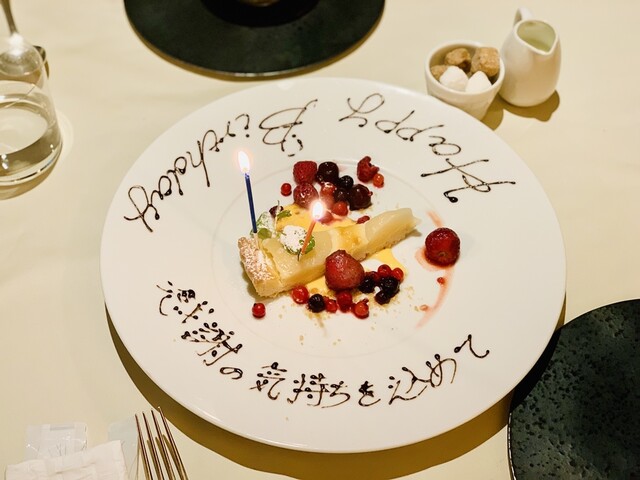 Happy Birthday
感謝の気持ちを込めて